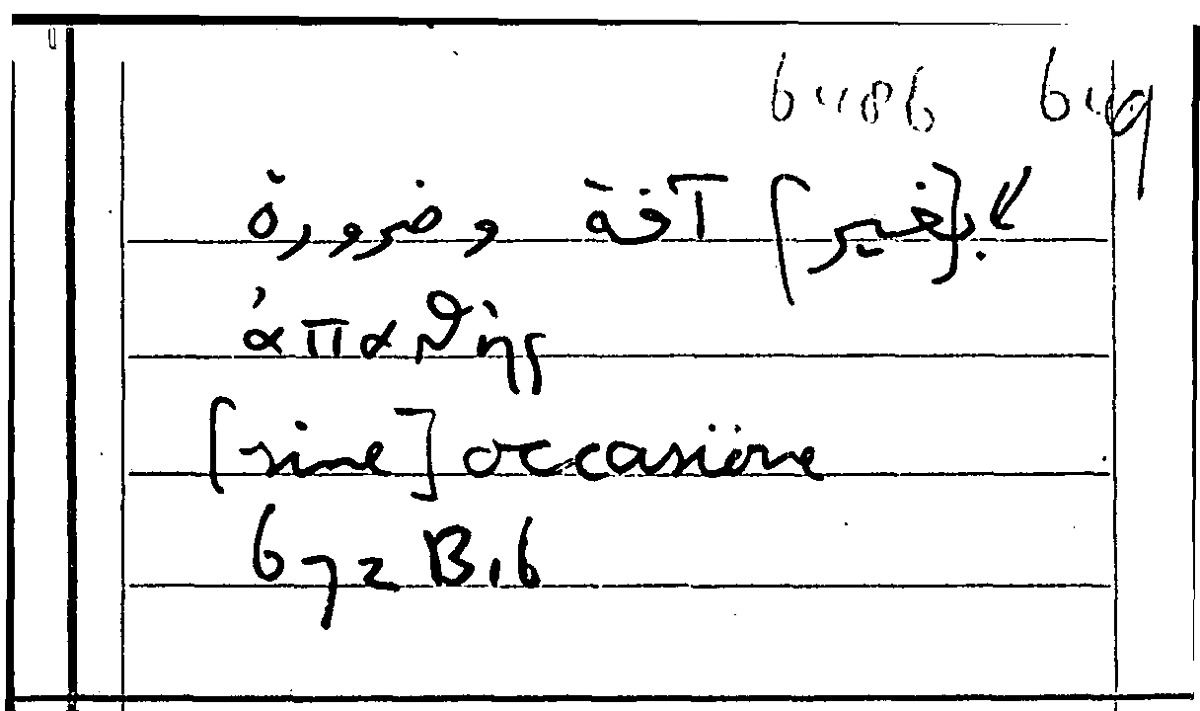 6,1186 6,119
[بغير] آفة وضرورة
ἀπαθὴς
[sine] occasione
672 B16